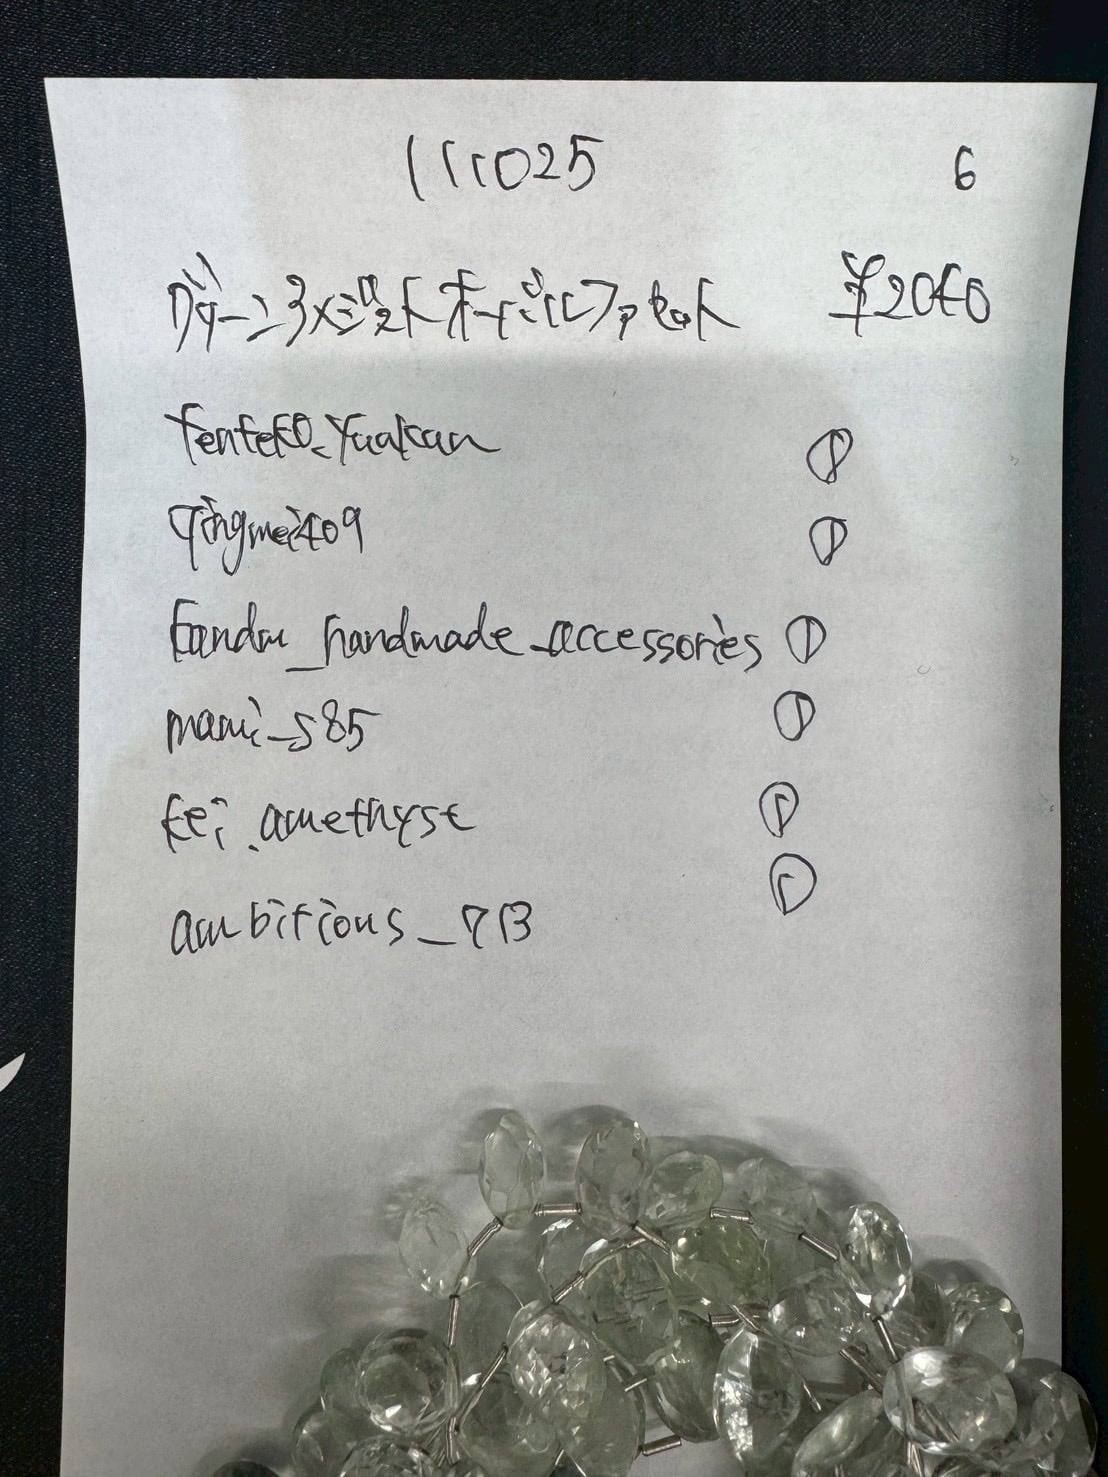 111025 6
グリーンアメジストオーバルファセット ¥2040
tenteko_yuakan ①
qingmei409 ①
kandm_handmade_accessories ①
mami_s85 ①
kei.amethyst ①
ambitious_713 ①